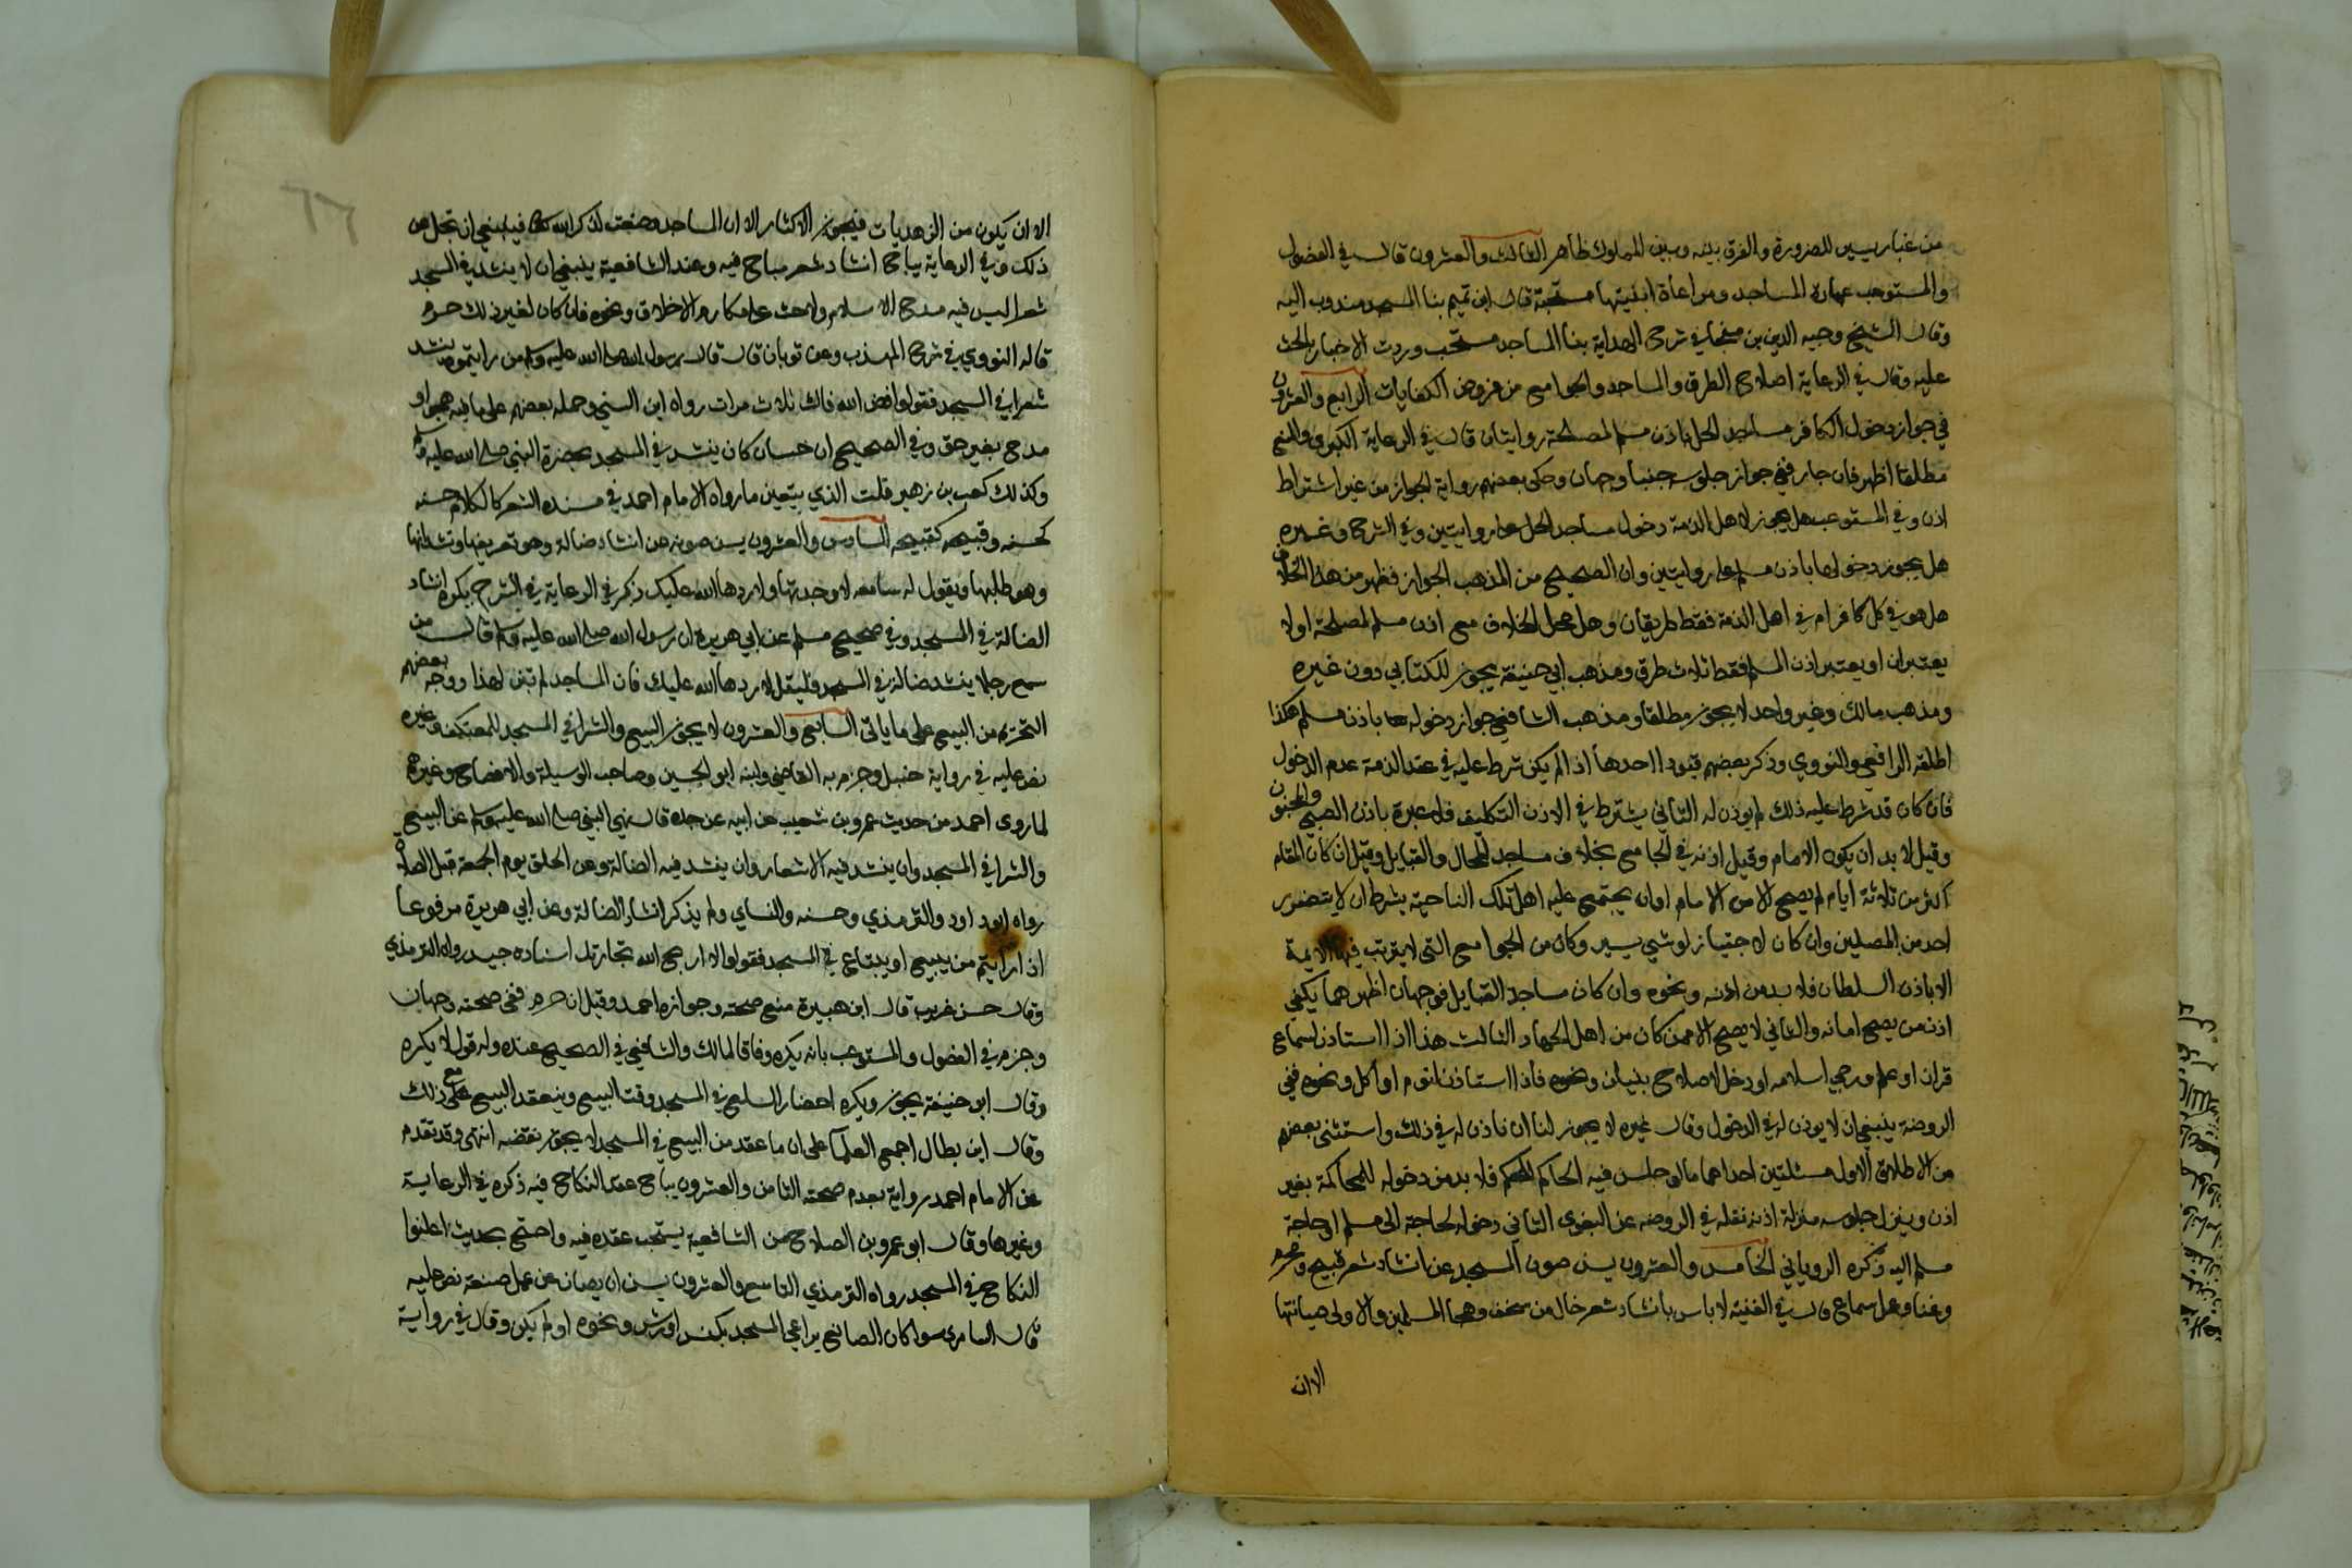 من غبار يسير للضرورة والفرق بينه وبين المملوك ظاهر الثالث والعشرون قال في الفصول
والمستوعب عمارة المساجد ومراعاة ابنيتها مستحبة قال ابن تميم بنا المسجد مندوب اليه
وقال الشيخ وجيه الدين بن منجا في شرح الهداية بنا المساجد مستحب وردت الاخبار بالحث
عليه وقال في الرعاية اصلاح الطرق والمساجد والجوامع من فروض الكفايات الرابع والعشرون
في جواز دخول الكافر مساجد الحل باذن مسلم لمصلحة روايتان قال في الرعاية الكبرى والمنع
مطلقا اظهر فان جاز ففي جواز جلوسه جنبا وجهان وحكى بعضهم رواية الجواز من غير اشتراط
اذن وفي المستوعب هل يجوز لاهل الذمة دخول مساجد الحل على روايتين وفي الشرح وغيره
هل يجوز دخولها باذن مسلم على روايتين وان الصحيح من المذهب الجواز فظهر من هذا الخلاف
هل هو في كل كافر ام في اهل الذمة فقط طريقان وهل محل الخلاف مع اذن مسلم لمصلحة او لا
يعتبران او يعتبر اذن المسلم فقط ثلاث طرق ومذهب ابي حنيفة يجوز للكتابي دون غيره
ومذهب مالك وغير واحد لا يجوز مطلقا ومذهب الشافعي جواز دخوله ها باذن مسلم هكذا
اطلقه الرافعي والنووي وذكر بعضهم قيودا احدها اذا لم يكن شرط عليه في عقد الذمة عدم الدخول
فان كان قد شرط عليه ذلك لم يوذن له الثاني يشترط في الاذن التكليف فلا عبرة باذن الصبي والمجنون
وقيل لا بد ان يكون الامام وقيل اذنه في الجامع بخلاف مساجد المحال والقبايل وقيل ان كان المقام
اكثر من ثلاثة ايام لم يصح الا من الامام او ان يجتمع عليه اهل تلك الناحية بشرط ان لا يتضرر
احد من المصلين وان كان لاجتياز لو شي يسير وكان من الجوامع التي لا يترتب فيها الايمة
الا باذن السلطان فلا بد من اذنه ونحوه وان كان مساجد القبايل فوجهان اظهرهما يكفي
اذن من يصح امانه والثاني لا يصح الا ممن كان من اهل الجهاد الثالث هذا اذا استاذن لسماع
قران او علم ورجي اسلامه او دخل لاصلاح بنيان ونحوه فاذا استاذن لنوم او اكل ونحوه ففي
الروضة ينبغي ان لا يوذن له في الدخول وقال غيره لا يجوز لنا ان ناذن له في ذلك واستثنى بعضهم
من الاطلاق الاول مسئلتين احداهما ما لو جلس فيه الحاكم للحكم فلا بد من دخوله للمحاكمة بغير
اذن وينزل جلوسه منزلة اذنه نقله في الروضة عن البغوي الثاني دخوله لحاجة الى مسلم او حاجة
مسلم اليه ذكره الروياني الخامس والعشرون يسن صون المسجد عن انشاد شعر قبيح ومحرم
وغنا وعمل سماع قال في الغنية لا باس بانشاد شعر خال من سخف وهجا المسلمين والاولى صيانتها
الا ان
الا ان يكون من الزهديات فيجوز الاكثار الا ان المساجد وضعت لذكر الله تعالى فينبغي ان تجل عن
ذلك وفي الرعاية يباح انشاد شعر مباح فيه وعند الشافعية ينبغي ان لا ينشد في المسجد
شعرا ليس فيه مدح الاسلام ولا حث على مكارم الاخلاق ونحوه فان كان لغير ذلك حرم
قاله النووي في شرح المهذب وعن ثوبان قال قال رسول الله صلى الله عليه وسلم من رايتموه ينشد
شعرا في المسجد فقولوا فض الله فاك ثلاث مرات رواه ابن السني وحمله بعضهم على ما فيه هجو او
مدح بغير حق وفي الصحيح ان حسان كان ينشد في المسجد بحضرة النبي صلى الله عليه وسلم
وكذلك كعب بن زهير قلت الذي يتعين ما رواه الامام احمد في مسنده الشعر كالكلام حسنه
كحسنه وقبيحه كقبيحه السادس والعشرون يسن صونه عن انشاد ضالة وهو تعريفها ونشدانها
وهو طلبها ويقول له سامعه لا وجدتها ولا ردها الله عليك ذكر في الرعاية في الشرح يكره انشاد
الضالة في المسجد وفي صحيح مسلم عن ابي هريرة ان رسول الله صلى الله عليه وسلم قال من
سمع رجلا ينشد ضالة في المسجد فليقل لا ردها الله عليك فان المساجد لم تبن لهذا ووجه بعضهم
التحريم من البيع على ما ياتي السابع والعشرون لا يجوز البيع والشرا في المسجد للمعتكف وغيره
نص عليه في رواية حنبل وجزم به القاضي وابنه ابو الحسين وصاحب الوسيلة والافصاح وغيرهم
لما روى احمد من حديث عمرو بن شعيب عن ابيه عن جده قال نهى النبي صلى الله عليه وسلم عن البيع
والشرا في المسجد وان ينشد فيه الاشعار وان ينشد فيه الضالة وعن الحلق يوم الجمعة قبل الصلاة
رواه ابو داود والترمذي وحسنه والنساي ولم يذكر انشاد الضالة وعن ابي هريرة مرفوعا
اذا رايتم من يبيع او يبتاع في المسجد فقولوا لا اربح الله تجارتك اسناده جيد رواه الترمذي
وقال حسن غريب قال ابن هبيرة منع صحته وجوازه احمد وقيل ان حرم ففي صحته وجهان
وجزم في الفصول والمستوعب بانه يكره وفاقا لمالك والشافعي في الصحيح عنده وله قول لا يكره
وقال ابو حنيفة يجوز ويكره احضار السلع في المسجد وقت البيع وينعقد البيع مع ذلك
وقال ابن بطال اجمع العلما على ان ما عقد من البيع في المسجد لا يجوز نقضه انتهى وقد تقدم
عن الامام احمد رواية بعدم صحته الثامن والعشرون يباح عقد النكاح فيه ذكره في الرعاية
وغيرها وقال ابو عمرو بن الصلاح من الشافعية يستحب عقده فيه واحتج بحديث اعلنوا
النكاح في المسجد رواه الترمذي التاسع والعشرون يسن ان يصان عن عمل صنعة نص عليه
قال السامري سوا كان الصانع يراعي المسجد بكنس او رش ونحوه او لم يكن وقال في رواية